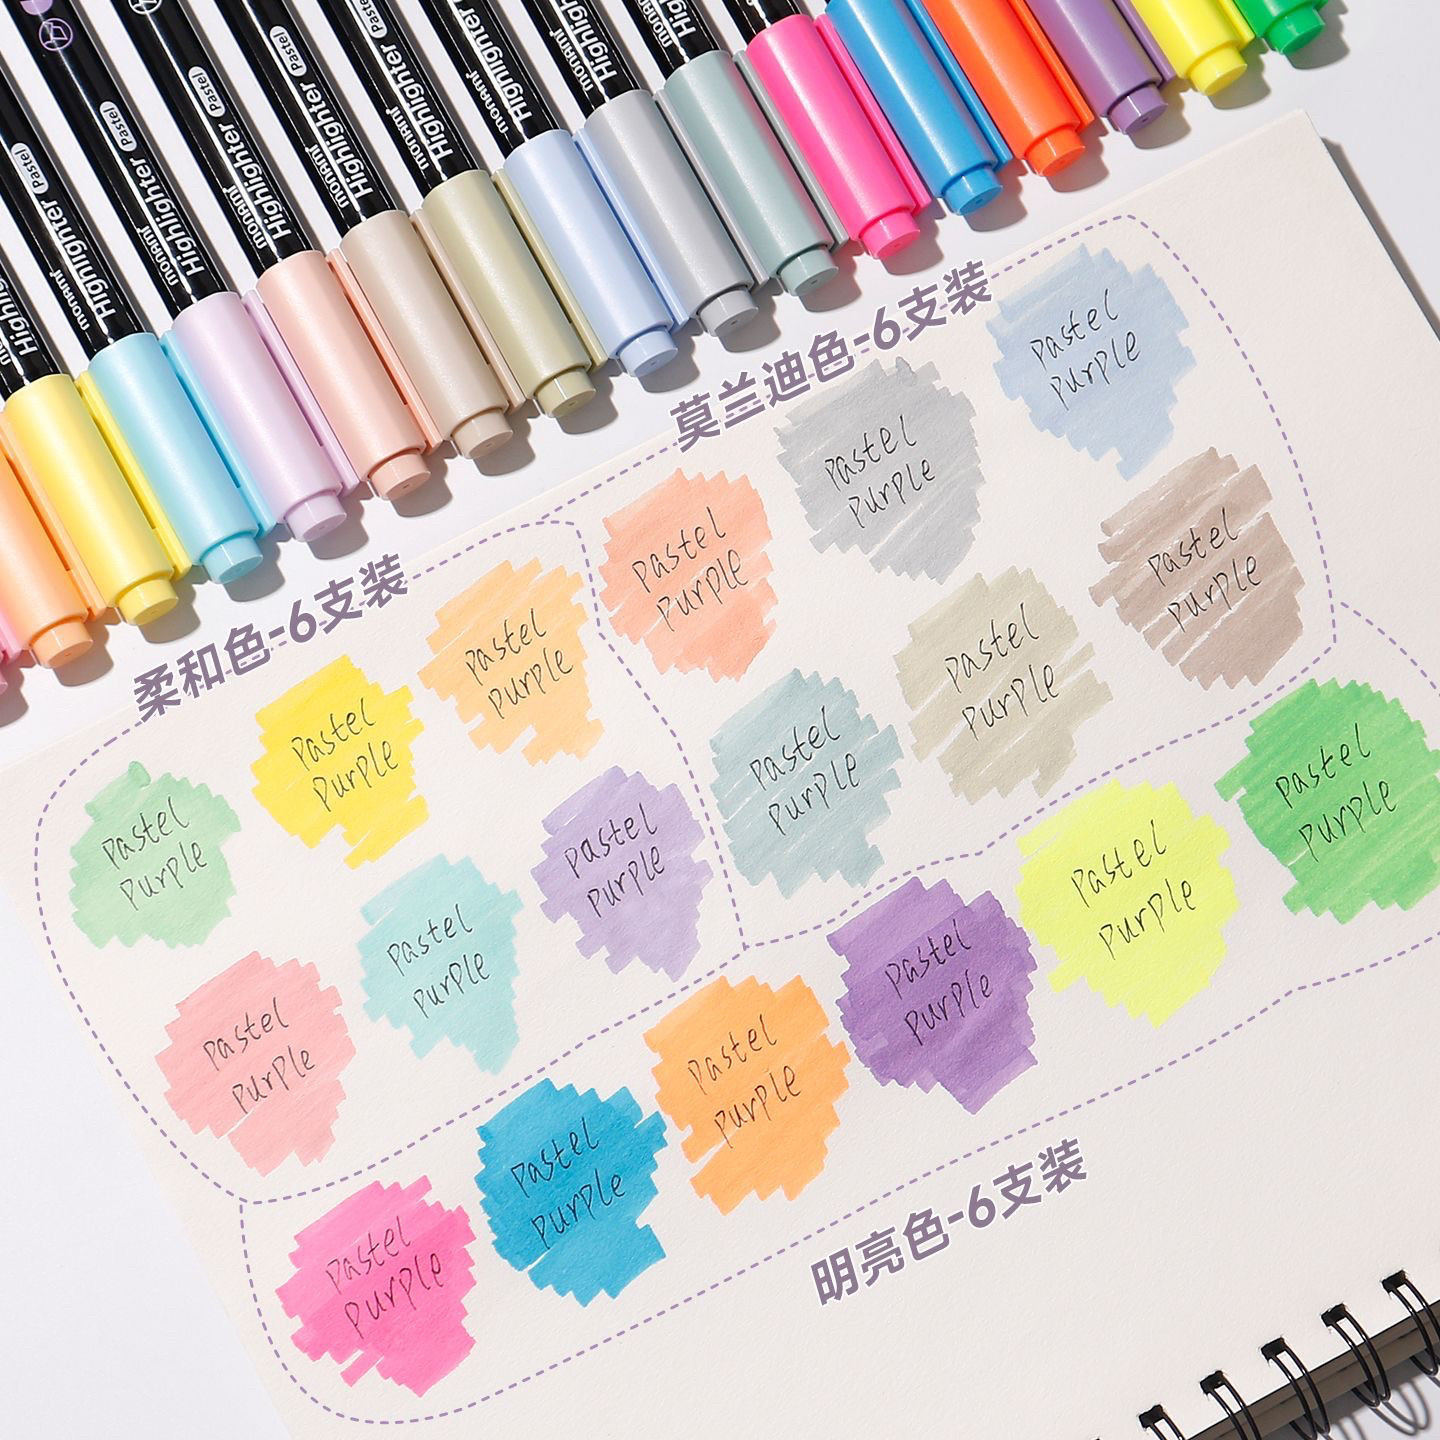 Highlighter Pastel
monami
Highlighter Pastel
monami
Highlighter Pastel
monami
Highlighter Pastel
monami
Highlighter
monami
Highlighter
monami
Highlighter
monami
莫兰迪色-6支装
柔和色-6支装
明亮色-6支装
Pastel
Purple
Pastel
Purple
Pastel
Purple
Pastel
Purple
Pastel
Purple
Pastel
Purple
Pastel
Purple
Pastel
Purple
Pastel
Purple
Pastel
Purple
Pastel
Purple
Pastel
Purple
Pastel
Purple
Pastel
Purple
Pastel
Purple
Pastel
Purple
Pastel
Purple
Pastel
Purple